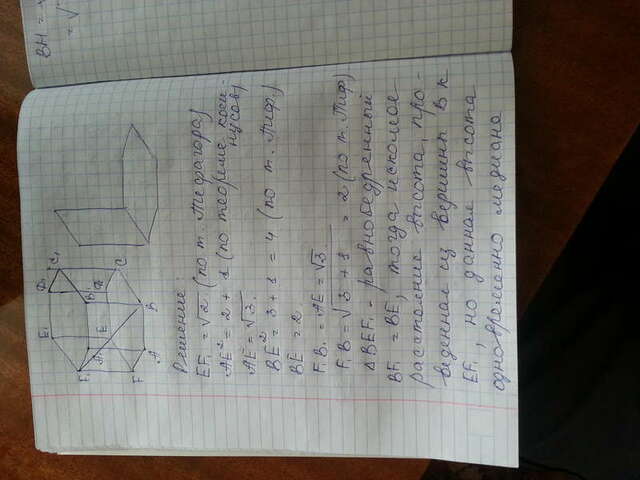 BH =
= √
E₁
C₁
F₁
B₁
E
C
F
A
B
Решение:
EF₁ = √2 (по т. Пифагора)
AE² = 2 + 1 (по теореме коси-
нусов)
AE = √3.
BE² = 3 + 1 = 4 (по т. Пиф.)
BE = 2.
F₁B₁ = AE = √3.
F₁B = √3 + 1 = 2 (по т. Пиф)
ΔBEF₁ - равнобедренный
BF₁ = BE, тогда искомое
расстояние высота, про-
веденная из вершины B к
EF₁, но данная высота
одновременно медиана